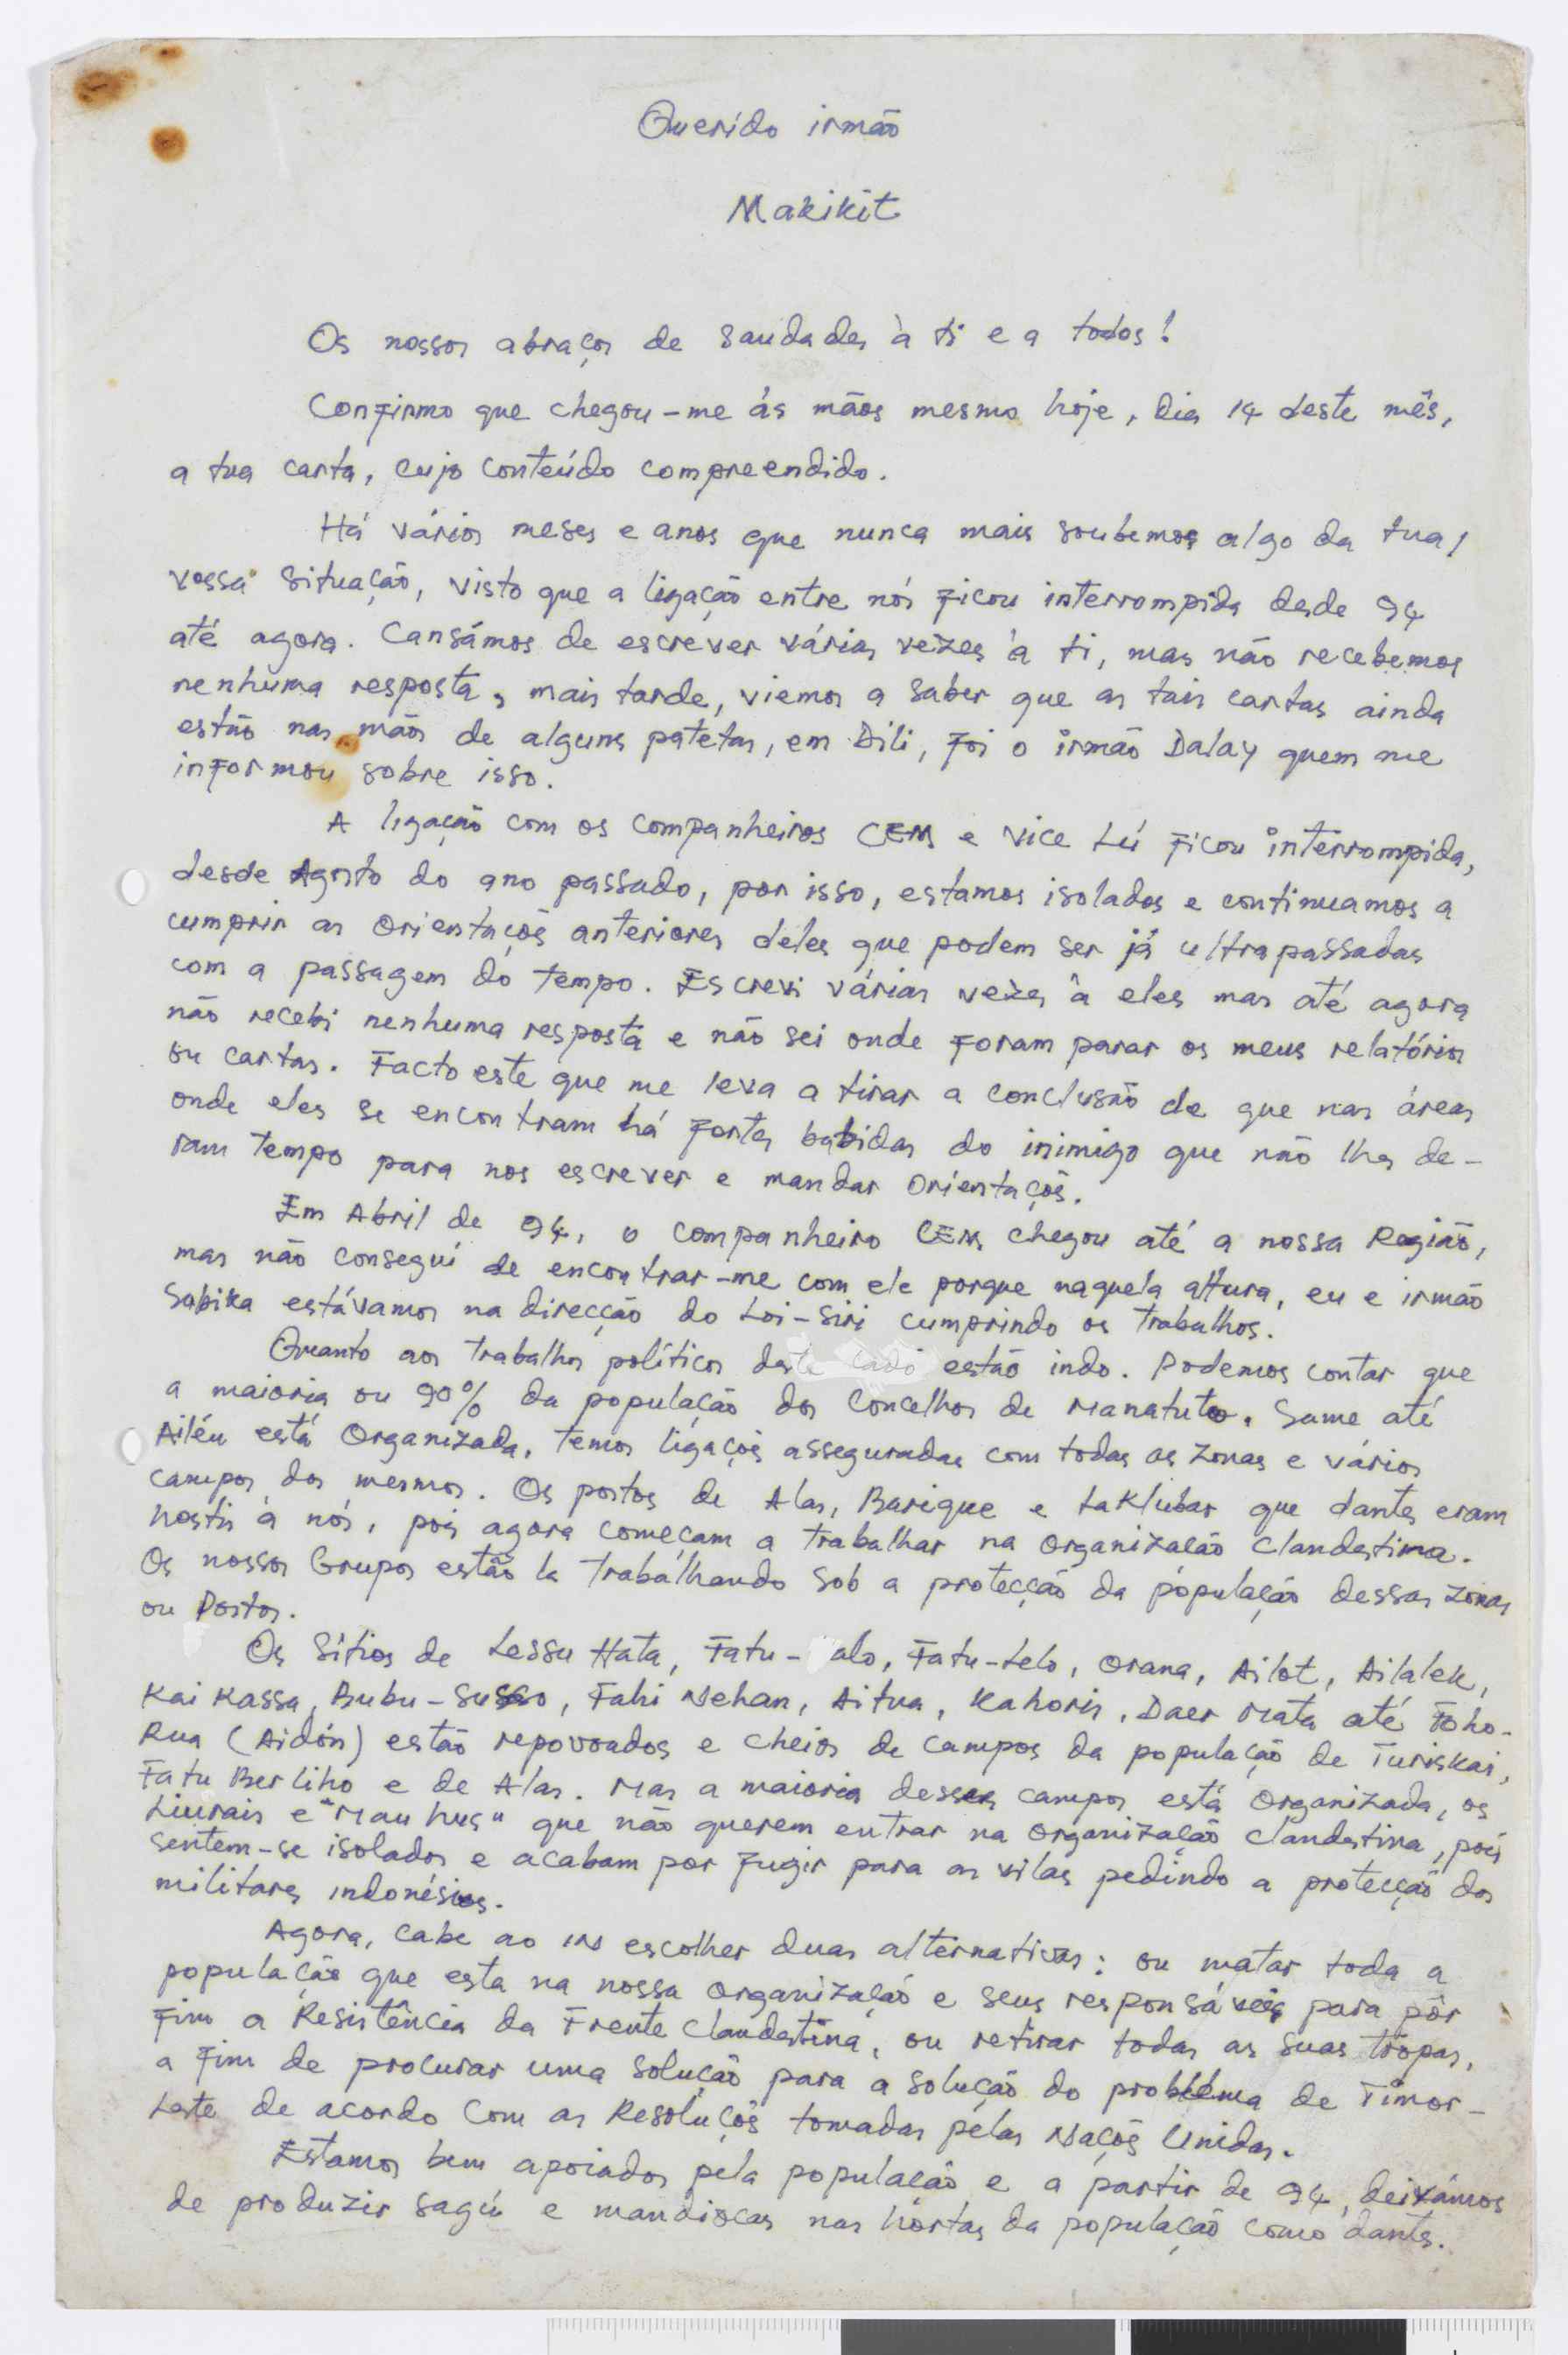 Querido irmão
Makikit
Os nossos abraços de saudades à ti e a todos!
Confirmo que chegou-me ás mãos mesmo hoje, dia 14 deste mês,
a tua carta, cujo conteúdo compreendido.
Há vários meses e anos que nunca mais soubemos algo da tua/
vossa situação, visto que a ligação entre nós ficou interrompida desde 94
até agora. Cansámos de escrever várias vezes à ti, mas não recebemos
nenhuma resposta, mais tarde, viemos a saber que as tais cartas ainda
estão nas mãos de alguns patetas, em Dili, foi o irmão Dalay quem me
informou sobre isso.
A ligação com os companheiros CEM e Vice Lú ficou interrompida,
desde Agosto do ano passado, por isso, estamos isolados e continuamos a
cumprir as orientações anteriores deles que podem ser já ultrapassadas
com a passagem do tempo. Escrevi várias vezes à eles mas até agora
não recebi nenhuma resposta e não sei onde foram parar os meus relatórios
ou cartas. Facto este que me leva a tirar a conclusão de que nas áreas
onde eles se encontram há fortes batidas do inimigo que não lhes de-
ram tempo para nos escrever e mandar orientações.
Em Abril de 94, o companheiro CEM chegou até a nossa Região,
mas não consegui de encontrar-me com ele porque naquela altura, eu e irmão
Sabika estávamos na direcção do Loi-Siri cumprindo os trabalhos.
Quanto aos trabalhos políticos deste lado estão indo. Podemos contar que
a maioria ou 90% da população dos Concelhos de Manatuto, Same até
Ailéu está Organizada, temos ligações asseguradas com todas as zonas e vários
campos dos mesmos. Os postos de Alas, Barique e Laklubar que dantes eram
hostis à nós, pois agora começam a trabalhar na Organização Clandestina.
Os nossos Grupos estão la trabalhando sob a protecção da população dessas zonas
ou Postos.
Os Sítios de Lessu Hata, Fatu- alo, Fatu-Lelo, Orana, Ailot, Ailalek,
Kai Kassa, Bubu-Susso, Fahi Nehan, Aitua, Kahoris, Daer Mata até Foho-
Rua (Aidón) estão repovoados e cheios de campos da população de Turiskai,
Fatu Berliho e de Alas. Mas a maioria desses campos está Organizada, os
Liurais e "Mau hus" que não querem entrar na organização clandestina, pois
sentem-se isolados e acabam por fugir para as vilas pedindo a protecção dos
militares indonésios.
Agora, cabe ao IN escolher duas alternativas: ou matar toda a
população que esta na nossa organização e seus responsáveis para pôr
fim a Resistência da Frente Clandestina, ou retirar todas as suas tropas,
a fim de procurar uma solução para a solução do problema de Timor-
Leste de acordo com as Resoluções tomadas pelas Nações Unidas.
Estamos bem apoiados pela população e a partir de 94, deixámos
de produzir sagú e mandiocas nas hortas da população como dantes.